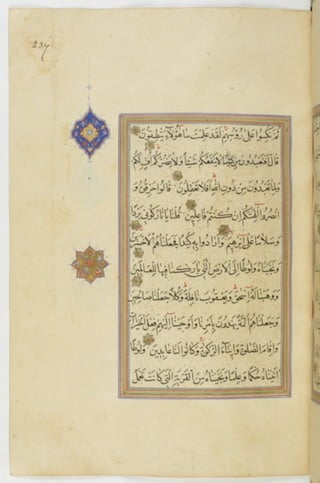 237
ثُمَّ نُكِسُوا عَلَى رُؤُسِهِمْ لَقَدْ عَلِمْتَ مَا هَؤُلَاءِ يَنْطِقُونَ
قَالَ أَفَتَعْبُدُونَ مِنْ دُونِ اللَّهِ مَا لَا يَنْفَعُكُمْ شَيْئًا وَلَا يَضُرُّكُمْ أُفٍّ لَكُمْ
وَلِمَا تَعْبُدُونَ مِنْ دُونِ اللَّهِ أَفَلَا تَعْقِلُونَ قَالُوا حَرِّقُوهُ وَ
انْصُرُوا آلِهَتَكُمْ إِنْ كُنْتُمْ فَاعِلِينَ قُلْنَا يَا نَارُ كُونِي بَرْدًا
وَسَلَامًا عَلَى إِبْرَهِيمَ وَأَرَادُوا بِهِ كَيْدًا فَجَعَلْنَاهُمُ الْأَخْسَرِينَ
وَنَجَّيْنَاهُ وَلُوطًا إِلَى الْأَرْضِ الَّتِي بَارَكْنَا فِيهَا لِلْعَالَمِينَ
وَوَهَبْنَا لَهُ إِسْحَقَ وَيَعْقُوبَ نَافِلَةً وَكُلًّا جَعَلْنَا صَالِحِينَ
وَجَعَلْنَاهُمْ أَئِمَّةً يَهْدُونَ بِأَمْرِنَا وَأَوْحَيْنَا إِلَيْهِمْ فِعْلَ الْخَيْرَاتِ
وَإِقَامَ الصَّلَوةِ وَإِيتَاءَ الزَّكَوةِ وَكَانُوا لَنَا عَابِدِينَ وَلُوطًا
آتَيْنَاهُ حُكْمًا وَعِلْمًا وَنَجَّيْنَاهُ مِنَ الْقَرْيَةِ الَّتِي كَانَتْ تَعْمَلُ